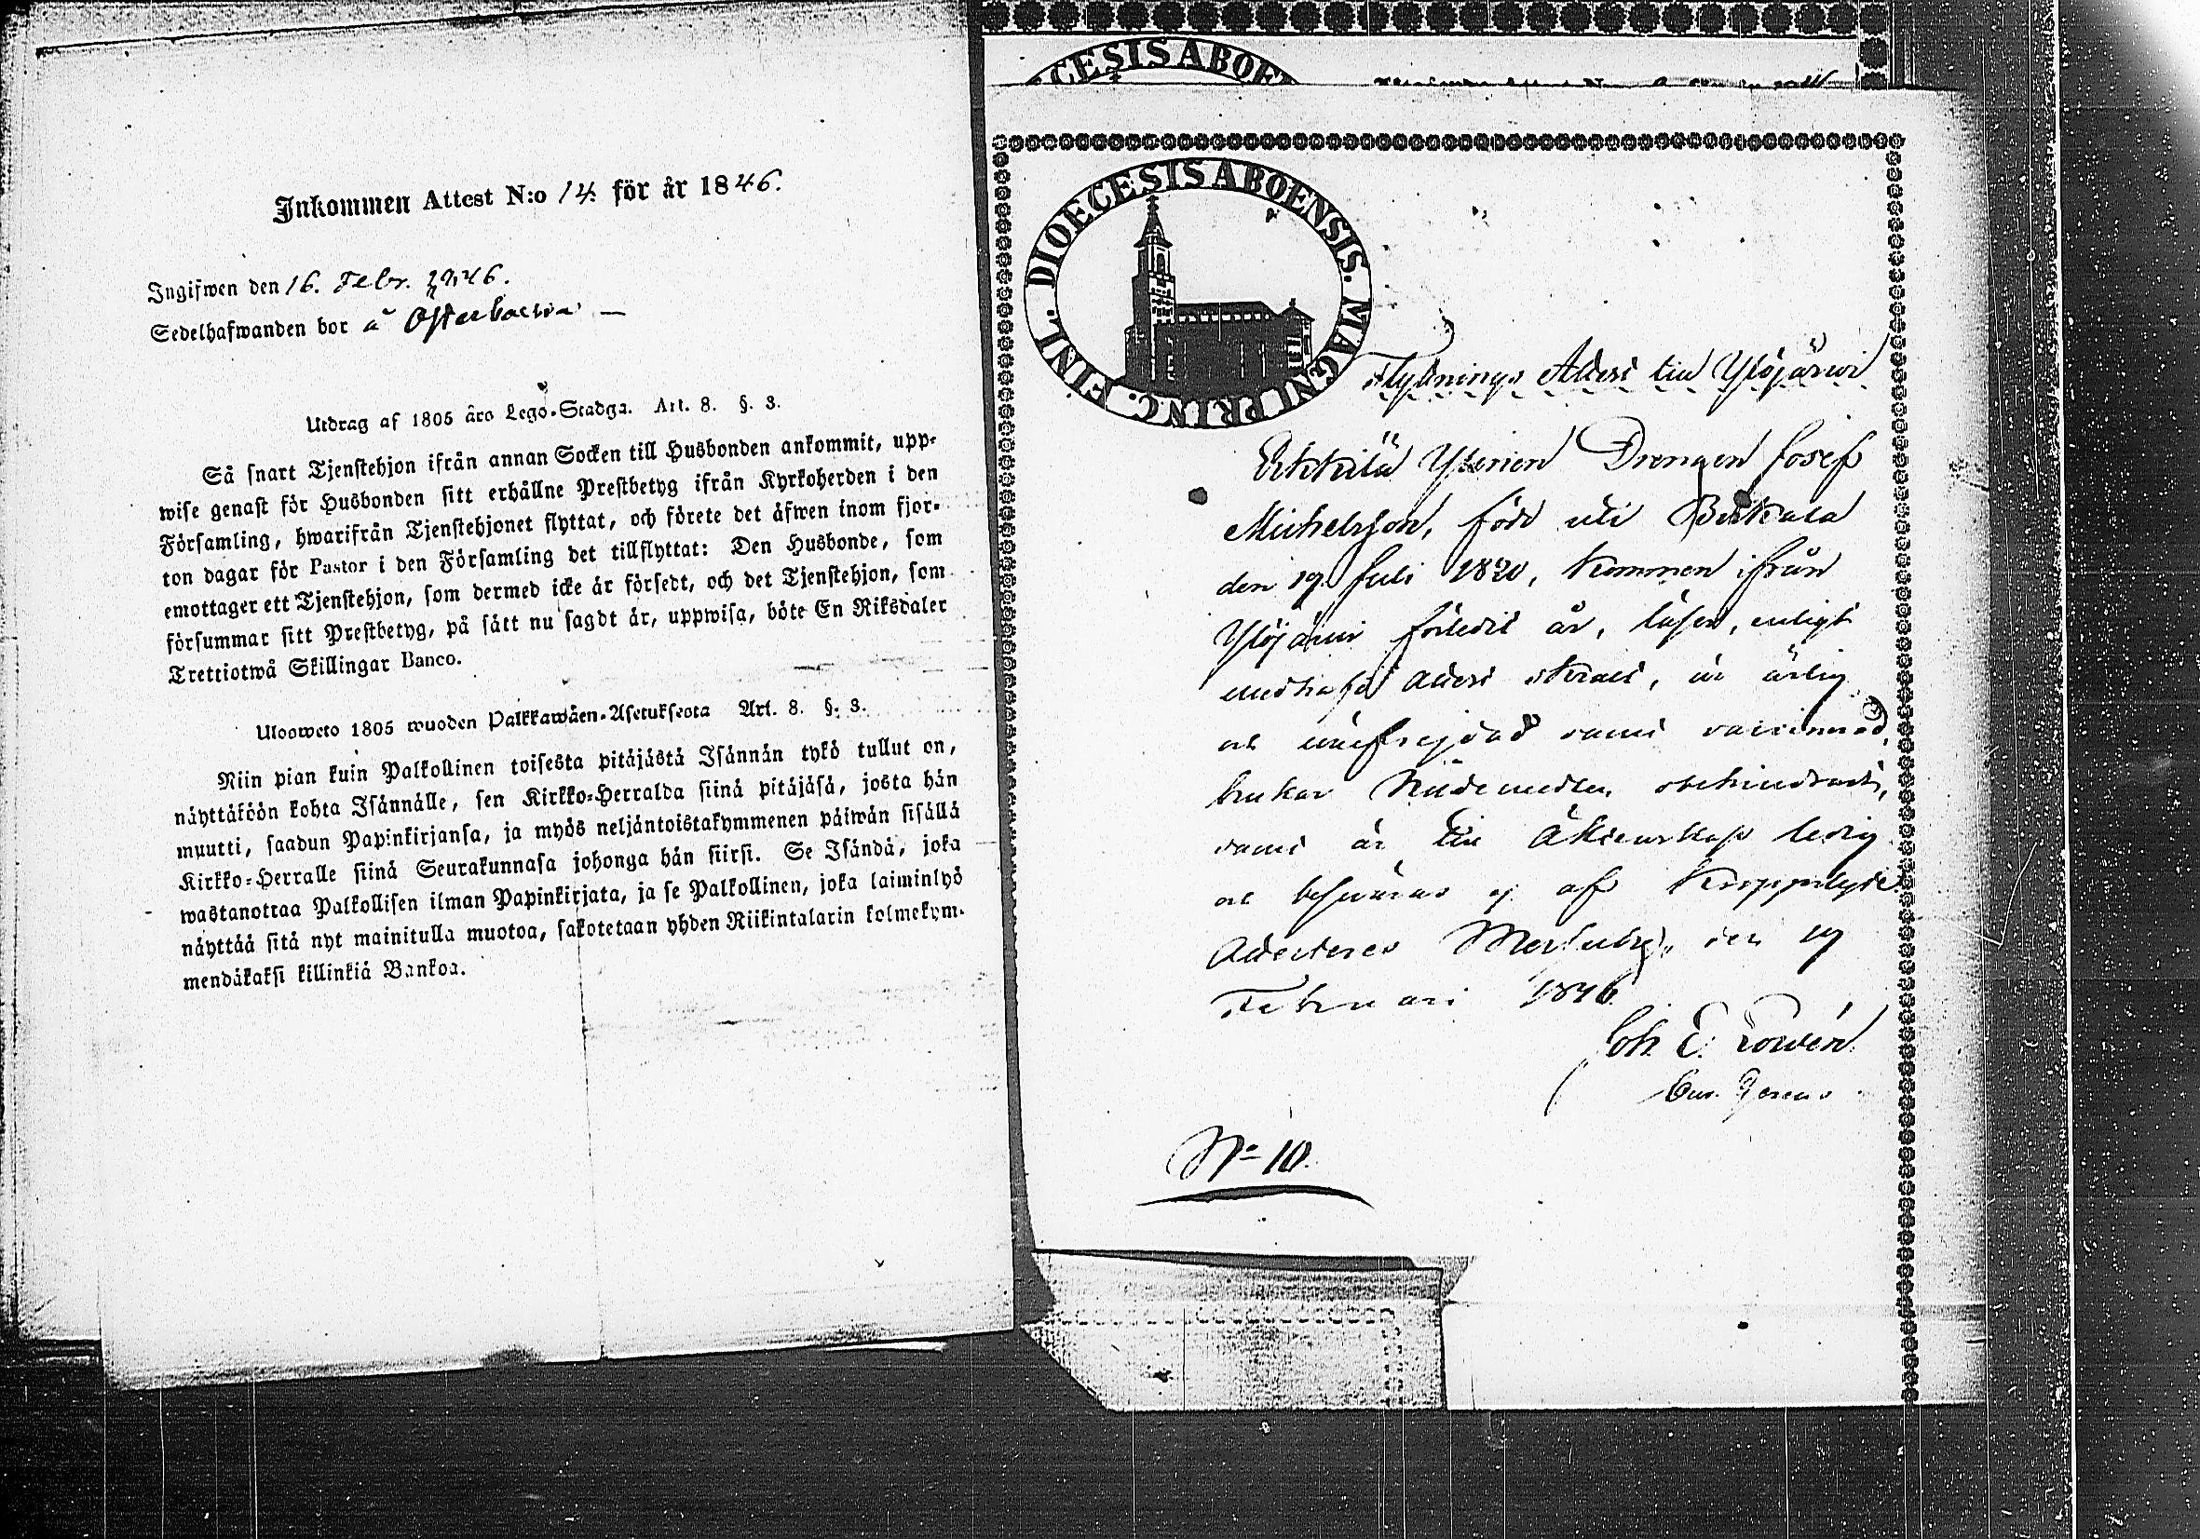 Inkommen Attest N:o 14. för år 1846.
Ingifwen den 16. Febr. 1846.
Sedelhafwanden bor å
Utdrag af 1805 års Lego-Stadga. Art. 8. §. 3.
Så snart Tjenstehjon ifrån annan Socken till Husbonden ankommit, upp-
wise genast för Husbonden sitt erhållne Prestbetyg ifrån Kyrkoherden i den
Församling, hwarifrån Tjenstehjonet flyttat, och förete det äfwen inom fjor-
ton dagar för Pastor i den Församling det tillflyttat: Den Husbonde, som
emottager ett Tjenstehjon, som dermed icke är försedt, och det Tjenstehjon, som
försummar sitt Prestbetyg, på sätt nu sagdt är, uppwisa, böte En Riksdaler
Trettiotwå Skillingar Banco.
Ulosweto 1805 wuoden Palkkawäen-Asetuksesta Art. 8. §. 3.
Niin pian kuin Palkollinen toisesta pitäjästä Isännän tykö tullut on,
näyttäköön kohta Isännälle, sen Kirkko-Herralda siinä pitäjäsä, josta hän
muutti, saadun Papinkirjansa, ja myös neljäntoistakymmenen päiwän sisällä
Kirkko-Herralle siinä Seurakunnasa johonga hän siirsi. Se Isändä, joka
wastanottaa Palkollisen ilman Papinkirjata, ja se Palkollinen, joka laiminlyö
näyttää sitä nyt mainitulla muotoa, sakotetaan yhden Riikintalarin kolmekym-
mendäkaksi killinkiä Bankoa.
CESIS ABOE
DIOECESIS ABOENSIS. MAGNI PRINC. FINL.
Flyttnings Attest till Ylöjärwi
Drengen Josef
Michelsson, född uti Birkala
den 19 Juli 1820, kommen ifrån
Ylöjärwi förledit år, läser, enligt
medhafd attest, är ärlig
och samt
brukar Nådemedlen obehindradt,
samt är till Äktenskap ledig
och beswäras ej af
Attesteras den 19
Februari 1846.
Joh. E.
N:o 10.